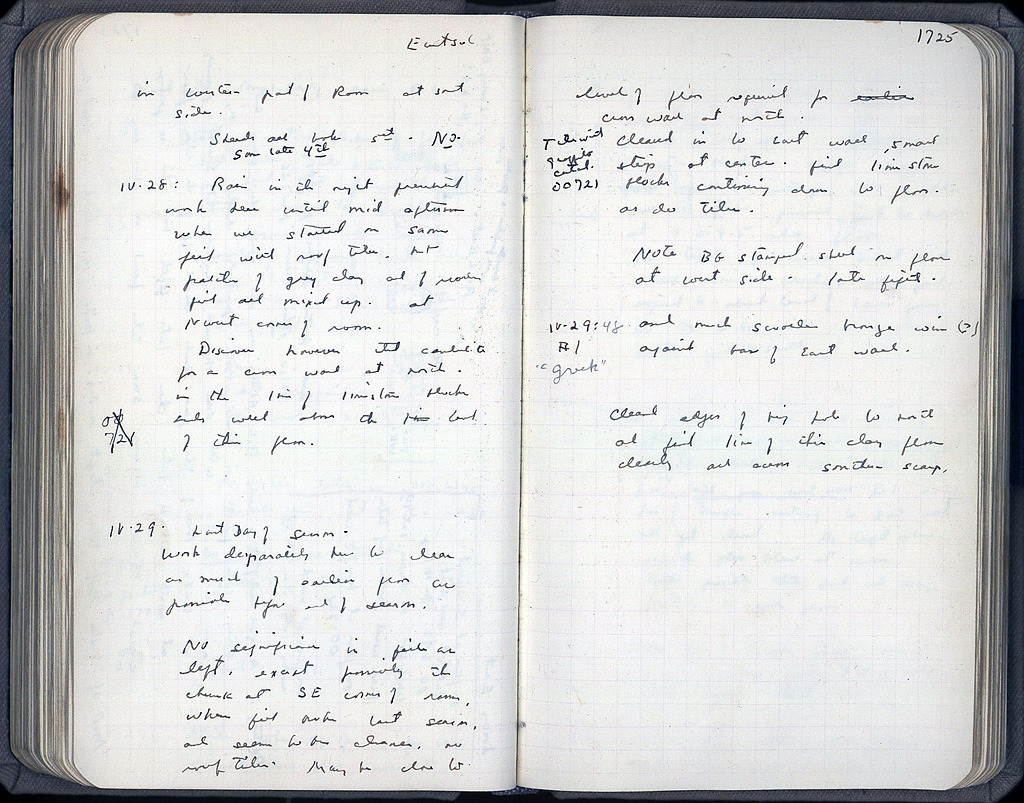 in western part of Room at south
side.
Sherds all look 5th. No.
Some late 4th
IV.28: Rain in the night prevented
work here until mid afternoon
when we started on same
fill with roof tiles,
patches of grey clay and of
fill all mixed up. at
NWest corner of room.
Discover however
for a cross wall at north.
in the line of limestone blocks
ends well above the level
00
721
of this floor.
IV.29. Last Day of season.
Work desperately here to clear
as much of earlier floor as
possible before end of season.
No significance in fill as
left, except possibly the
chunk at SE corner of room,
where fill under last season,
and seems to be cleaner, no
roof tiles. May be close to
1725
level of floor required for earlier
cross wall at north.
cleared in to east wall, small
catal. step at center. fill limestone
00721 blocks continuing down to floor.
as do tiles.
Note BG stamped sherd on floor
at west side. late fifth.
IV-29:48 and much bronze (?)
#1 against base of East wall.
"Greek"
Cleaned edges of big hole to north
and find line of this clay floor
clearly all across southern scarp.